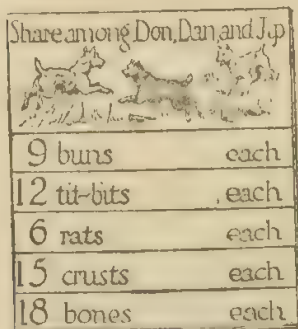 Share among Don, Dan, and Jip
9 buns each
12 tit-bits each
6 rats each
15 crusts each
18 bones each